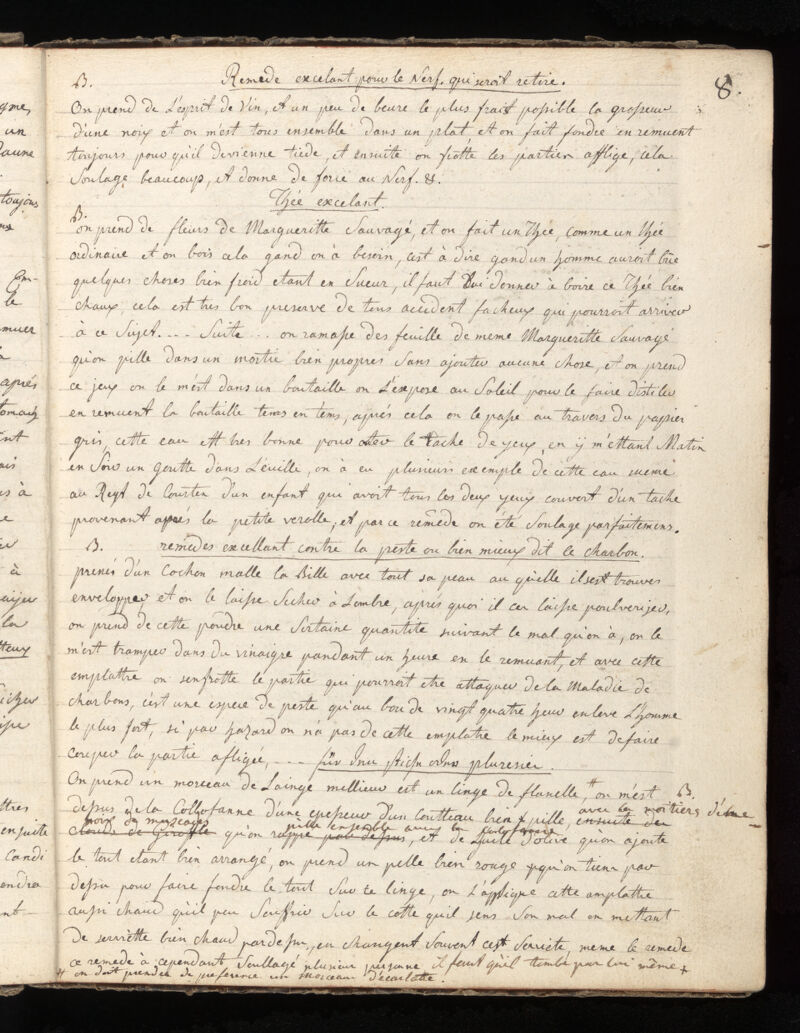 8.
B. Remede excelant pour le Nerf. qui seroit retire.
On prend de L'esprit de Vin, et un peu de beure le plus frait possible la grosseur
d'une noix et on m'est tous ensemble dans un plat, et on fait fondre en remuent
toujours pour qu'il devienne tiede, et ensuite on frotte les partien afflige, cela
Soulage beaucoup, et donne de force au Nerf. &.
Thée excelant.
B.
on prend de fleurs de Margueritte Sauvagé, et on fait un Thée, comme un thée
ordinaire et on bois cela gand on à besoin, cest à dire gand un homme auroit bue
quelques choses bien froid etant en Sueur, il faut Lui donner à boire ce Thée bien
chaux, cela est tres bon preserve de tous accident facheux qui pourroit arriver
à ce Sujet.... Suite... on ramasse des feuille de meme Margueritte Sauvagé
qu'on pille dans un mortie bien propres Sans ajouter aucune chose, et on prend
ce jeux on le mést dans un boutaille on L'expose au Soleil pour le faire distiler
en remuent la boutaille tems en tems, aprés cela on le passe au travers du papier
gris, cette eau est tres bonne pour oter le tache de yeux, en ÿ m'ettant Matin
en Soir un goutte dans L'éuille, on à eu plusieurs exemple de cette eau meme
au Regt de Courten d'un enfant qui avoit tous les deux yeux couvert d'un tache
provenant aprés la petite verolle, et par ce remêde on été Soulage parfaitemens.
B. remédes excellant contre la peste ou bien mieux dit le charbon.
prenés d'un Cochon malle la Bille avec tout sa peau au quelle il sest trouves
envelopper et on le laisse Secher à Lombre, aprés quoi il ceu laisse poulveriser,
on prend de cette poudre une Sertaine quantite suivant le mal qu'on à, on le
m'est tramper dans du vinaigre pandant un heure en le remuant, et avec cette
emplattre on senfrotte le partie qui pourroit etre attaquer de la Maladie de
charbons, c'est une espece de peste qu'au bou de vingt quatre heur enleve L'homme
le plus fort, si par hazard on n'a pas de cette emplatre le mieux est de faire
couper la partie affligée, ---- für
On prend un morceau de Lainge millieur est un linge de flanelle # on m'est B.
dessus de la Collofanne d'une epesseur d'un Coutteau bien pille, avec la moitiers d'une
noix de muscades pille ensemble avec la Collofanne
Cloude de Giroffle qu'on rappe par dessus, et de L'uille d'olive qu'on ajoute
le tout etant bien arrangé, on prend un pelle bien rouge qu'on tien par
dessu pour faire fondre le tout Sur le linge, on L'apligue cette amplathe
aussi chaud qu'il peu Souffrir Sur le cotte qu'il sens Son mal en mettant
de serviette bien chaud pardessu, en changent Souvent cest Serviete, meme le remede
ce remede à cependant Soullagé plusieur personne il faut qu'il tombe par lui même +
# on doit prendre de preference un morceau d'écarlatte.